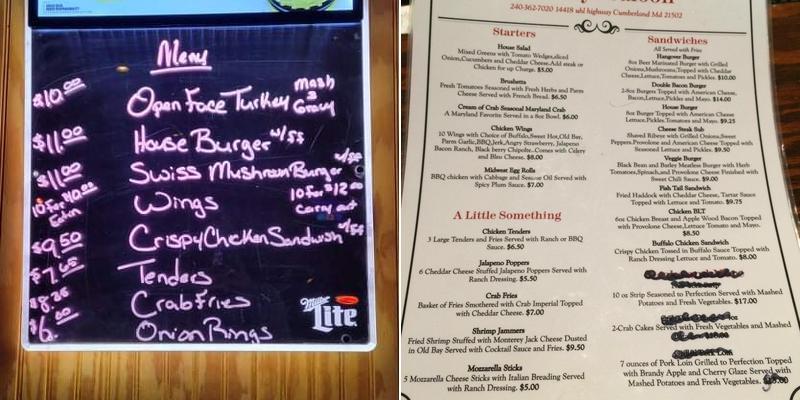 Menu
$10.00 Open Face Turkey Mash Gravy
$11.00 House Burger w/ss
$11.00 Swiss Mushroom Burger w/ss
10 For $10.00 Eatin Wings 10 For $12.00 Carry out
$9.50 Crispy Chicken Sandwish w/ss
$7.65 Tenders
$8.25 Crab Fries
$6.00 Onion Rings
Miller Lite
240-362-7020 14418 uhl highway Cumberland Md 21502
Starters
House Salad
Mixed Greens with Tomato Wedges,sliced
Onion,Cucumbers and Cheddar Cheese.Add steak or
Chicken for up Charge. $5.00
Brushetta
Fresh Tomatoes Seasoned with Fresh Herbs and Parm
Cheese Served with French Bread. $6.50
Cream of Crab Seasonal Maryland Crab
A Maryland Favorite Served in a 8oz Bowl. $6.00
Chicken Wings
10 Wings with Choice of Buffalo,Sweet Hot,Old Bay,
Parm Garlic,BBQ,Jerk,Angry Strawberry, Jalapeno
Bacon Ranch, Black berry Chipolte..Comes with Celery
and Bleu Cheese. $8.00
Midwest Egg Rolls
BBQ chicken with Cabbage and Sesame Oil Served with
Spicy Plum Sauce. $7.00
A Little Something
Chicken Tenders
3 Large Tenders and Fries Served with Ranch or BBQ
Sauce. $6.50
Jalapeno Poppers
6 Cheddar Cheese Stuffed Jalapeno Poppers Served with
Ranch Dressing. $5.50
Crab Fries
Basket of Fries Smothered with Crab Imperial Topped
with Cheddar Cheese. $7.00
Shrimp Jammers
Fried Shrimp Stuffed with Monterey Jack Cheese Dusted
in Old Bay Served with Cocktail Sauce and Fries. $9.50
Mozzarella Sticks
5 Mozzarella Cheese Sticks with Italian Breading Served
with Ranch Dressing. $5.00
Sandwiches
All Served with Fries
Hangover Burger
8oz Beer Marinated Burger with Grilled
Onions,Mushrooms,Topped with Cheddar
Cheese,Lettuce,Tomatos and Pickles. $10.00
Double Bacon Burger
2-8oz Burgers Topped with American Cheese,
Bacon,Lettuce,Pickles and Mayo. $14.00
House Burger
8oz Burger Topped with American Cheese
Lettuce,Pickles,Tomatos and Mayo. $9.25
Cheese Steak Sub
Shaved Ribeye with Grilled Onions,Sweet
Peppers,Provolone and American Cheese Topped with
Seasoned Lettuce and Pickles. $9.50
Veggie Burger
Black Bean and Barley Meatless Burger with Herb
Tomatoes,Spinach,and Provolone Cheese Finished with
Sweet Chili Sauce. $9.00
Fish Tail Sandwich
Fried Haddock with Cheddar Cheese, Tartar Sauce
Topped with Lettuce and Tomato. $9.75
Chicken BLT
6oz Chicken Breast and Apple Wood Bacon Topped
with Provolone Cheese,Lettuce Tomato and Mayo.
$8.50
Buffalo Chicken Sandwich
Crispy Chicken Tossed in Buffalo Sauce Topped with
Ranch Dressing Lettuce and Tomato. $8.00
10 oz Strip Seasoned to Perfection Served with Mashed
Potatoes and Fresh Vegetables. $17.00
2-Crab Cakes Served with Fresh Vegetables and Mashed
7 ounces of Pork Loin Grilled to Perfection Topped
with Brandy Apple and Cherry Glaze Served with
Mashed Potatoes and Fresh Vegetables.